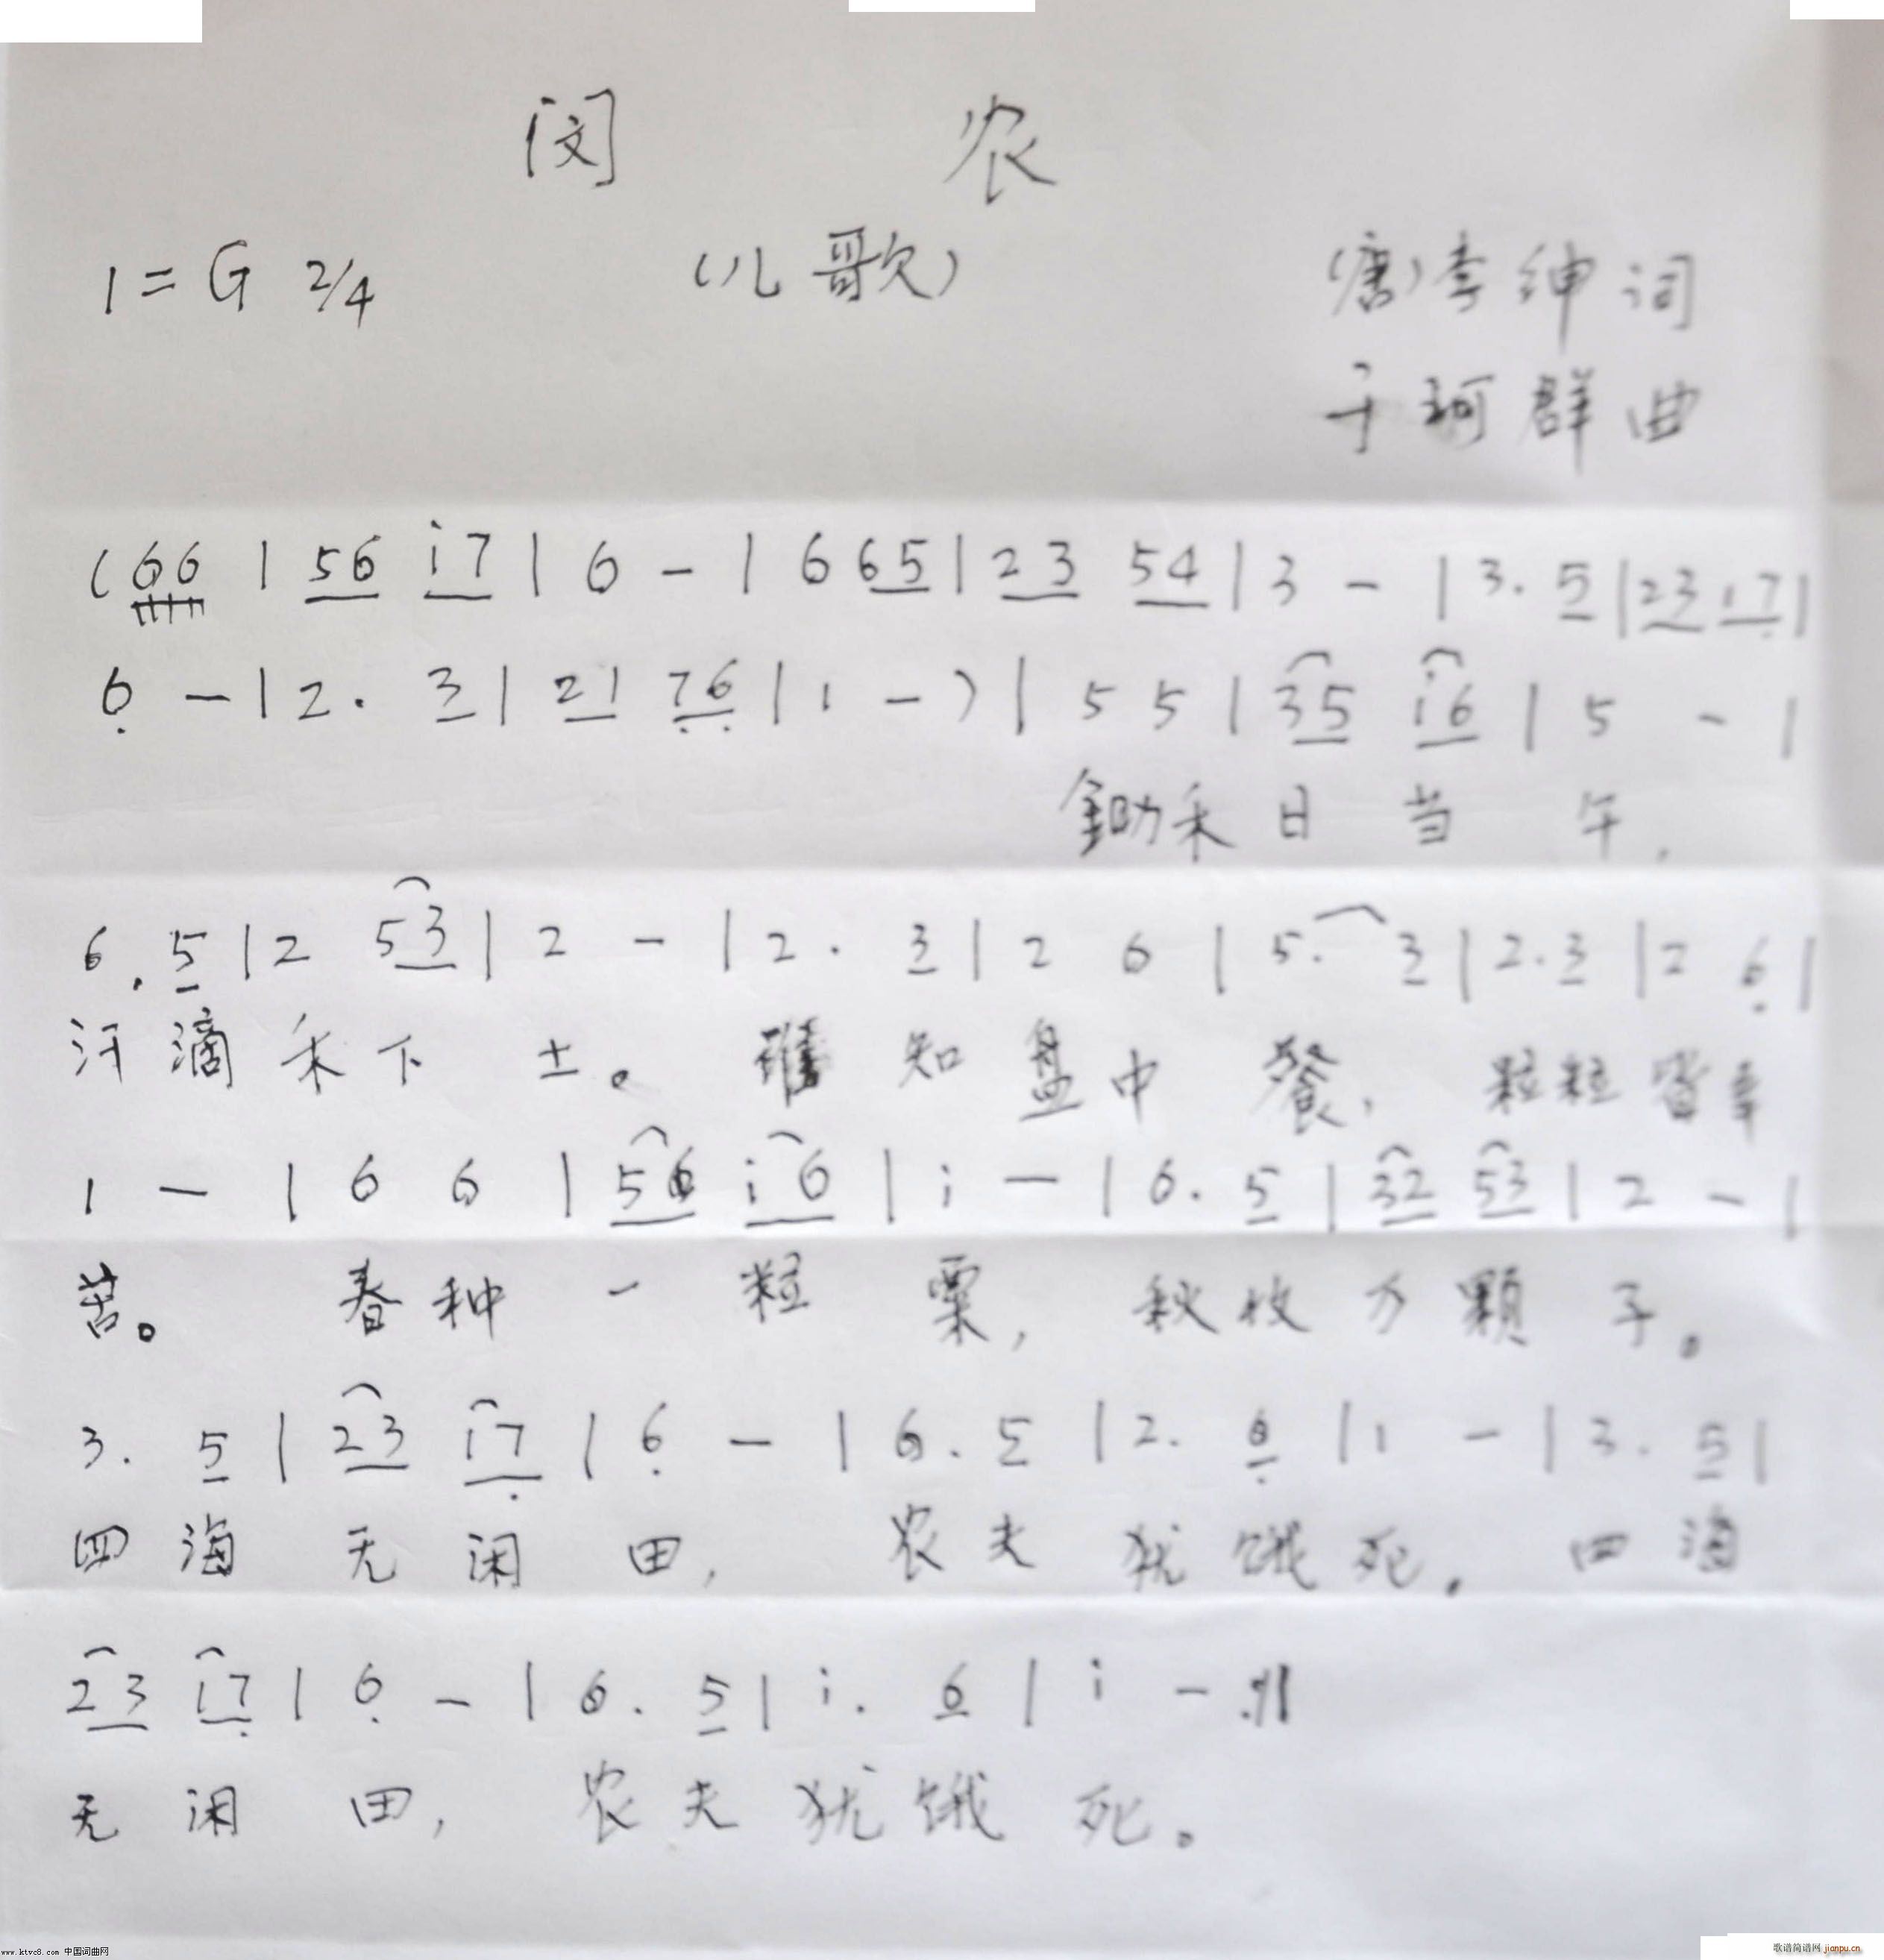 闵 农
1=G 2/4 (儿歌) (唐)李绅词
于珂群曲
(66 | 56 i7 | 6 - | 6 65 | 23 54 | 3 - | 3. 5 | 23 17 |
6 - | 2. 3 | 21 76 | 1 - ) | 5 5 | 35 i6 | 5 - |
鋤禾日当午,
6. 5 | 2 53 | 2 - | 2. 3 | 2 6 | 5. 3 | 2. 3 | 2 6 |
汗滴禾下土。 谁知盘中餐, 粒粒皆辛
1 - | 6 6 | 56 i6 | i - | 6. 5 | 32 53 | 2 - |
苦。 春种一粒粟, 秋收万颗子。
3. 5 | 23 17 | 6 - | 6. 5 | 2. 6 | 1 - | 3. 5 |
四海无闲田, 农夫犹饿死. 四海
23 17 | 6 - | 6. 5 | i. 6 | i - :||
无闲田, 农夫犹饿死。
www.ktvc8.com 中国词曲网
歌谱简谱网 jianpu.cn